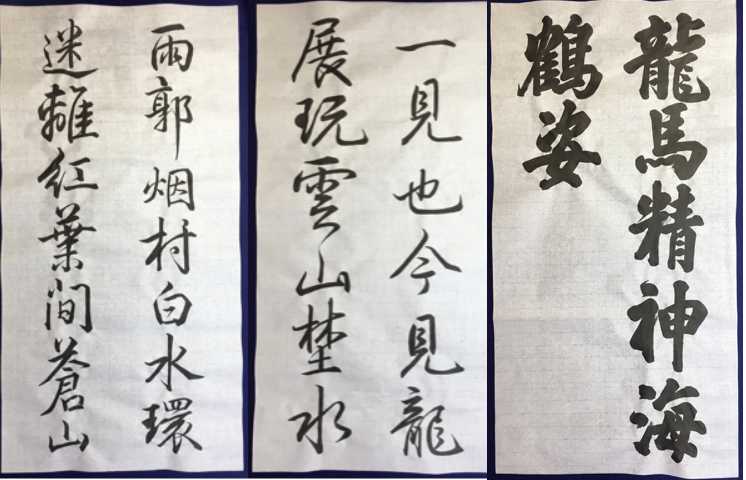 龍馬精神海
鶴姿
一見也今見龍
展玩雲山埜水
雨郭烟村白水環
迷離紅葉間蒼山